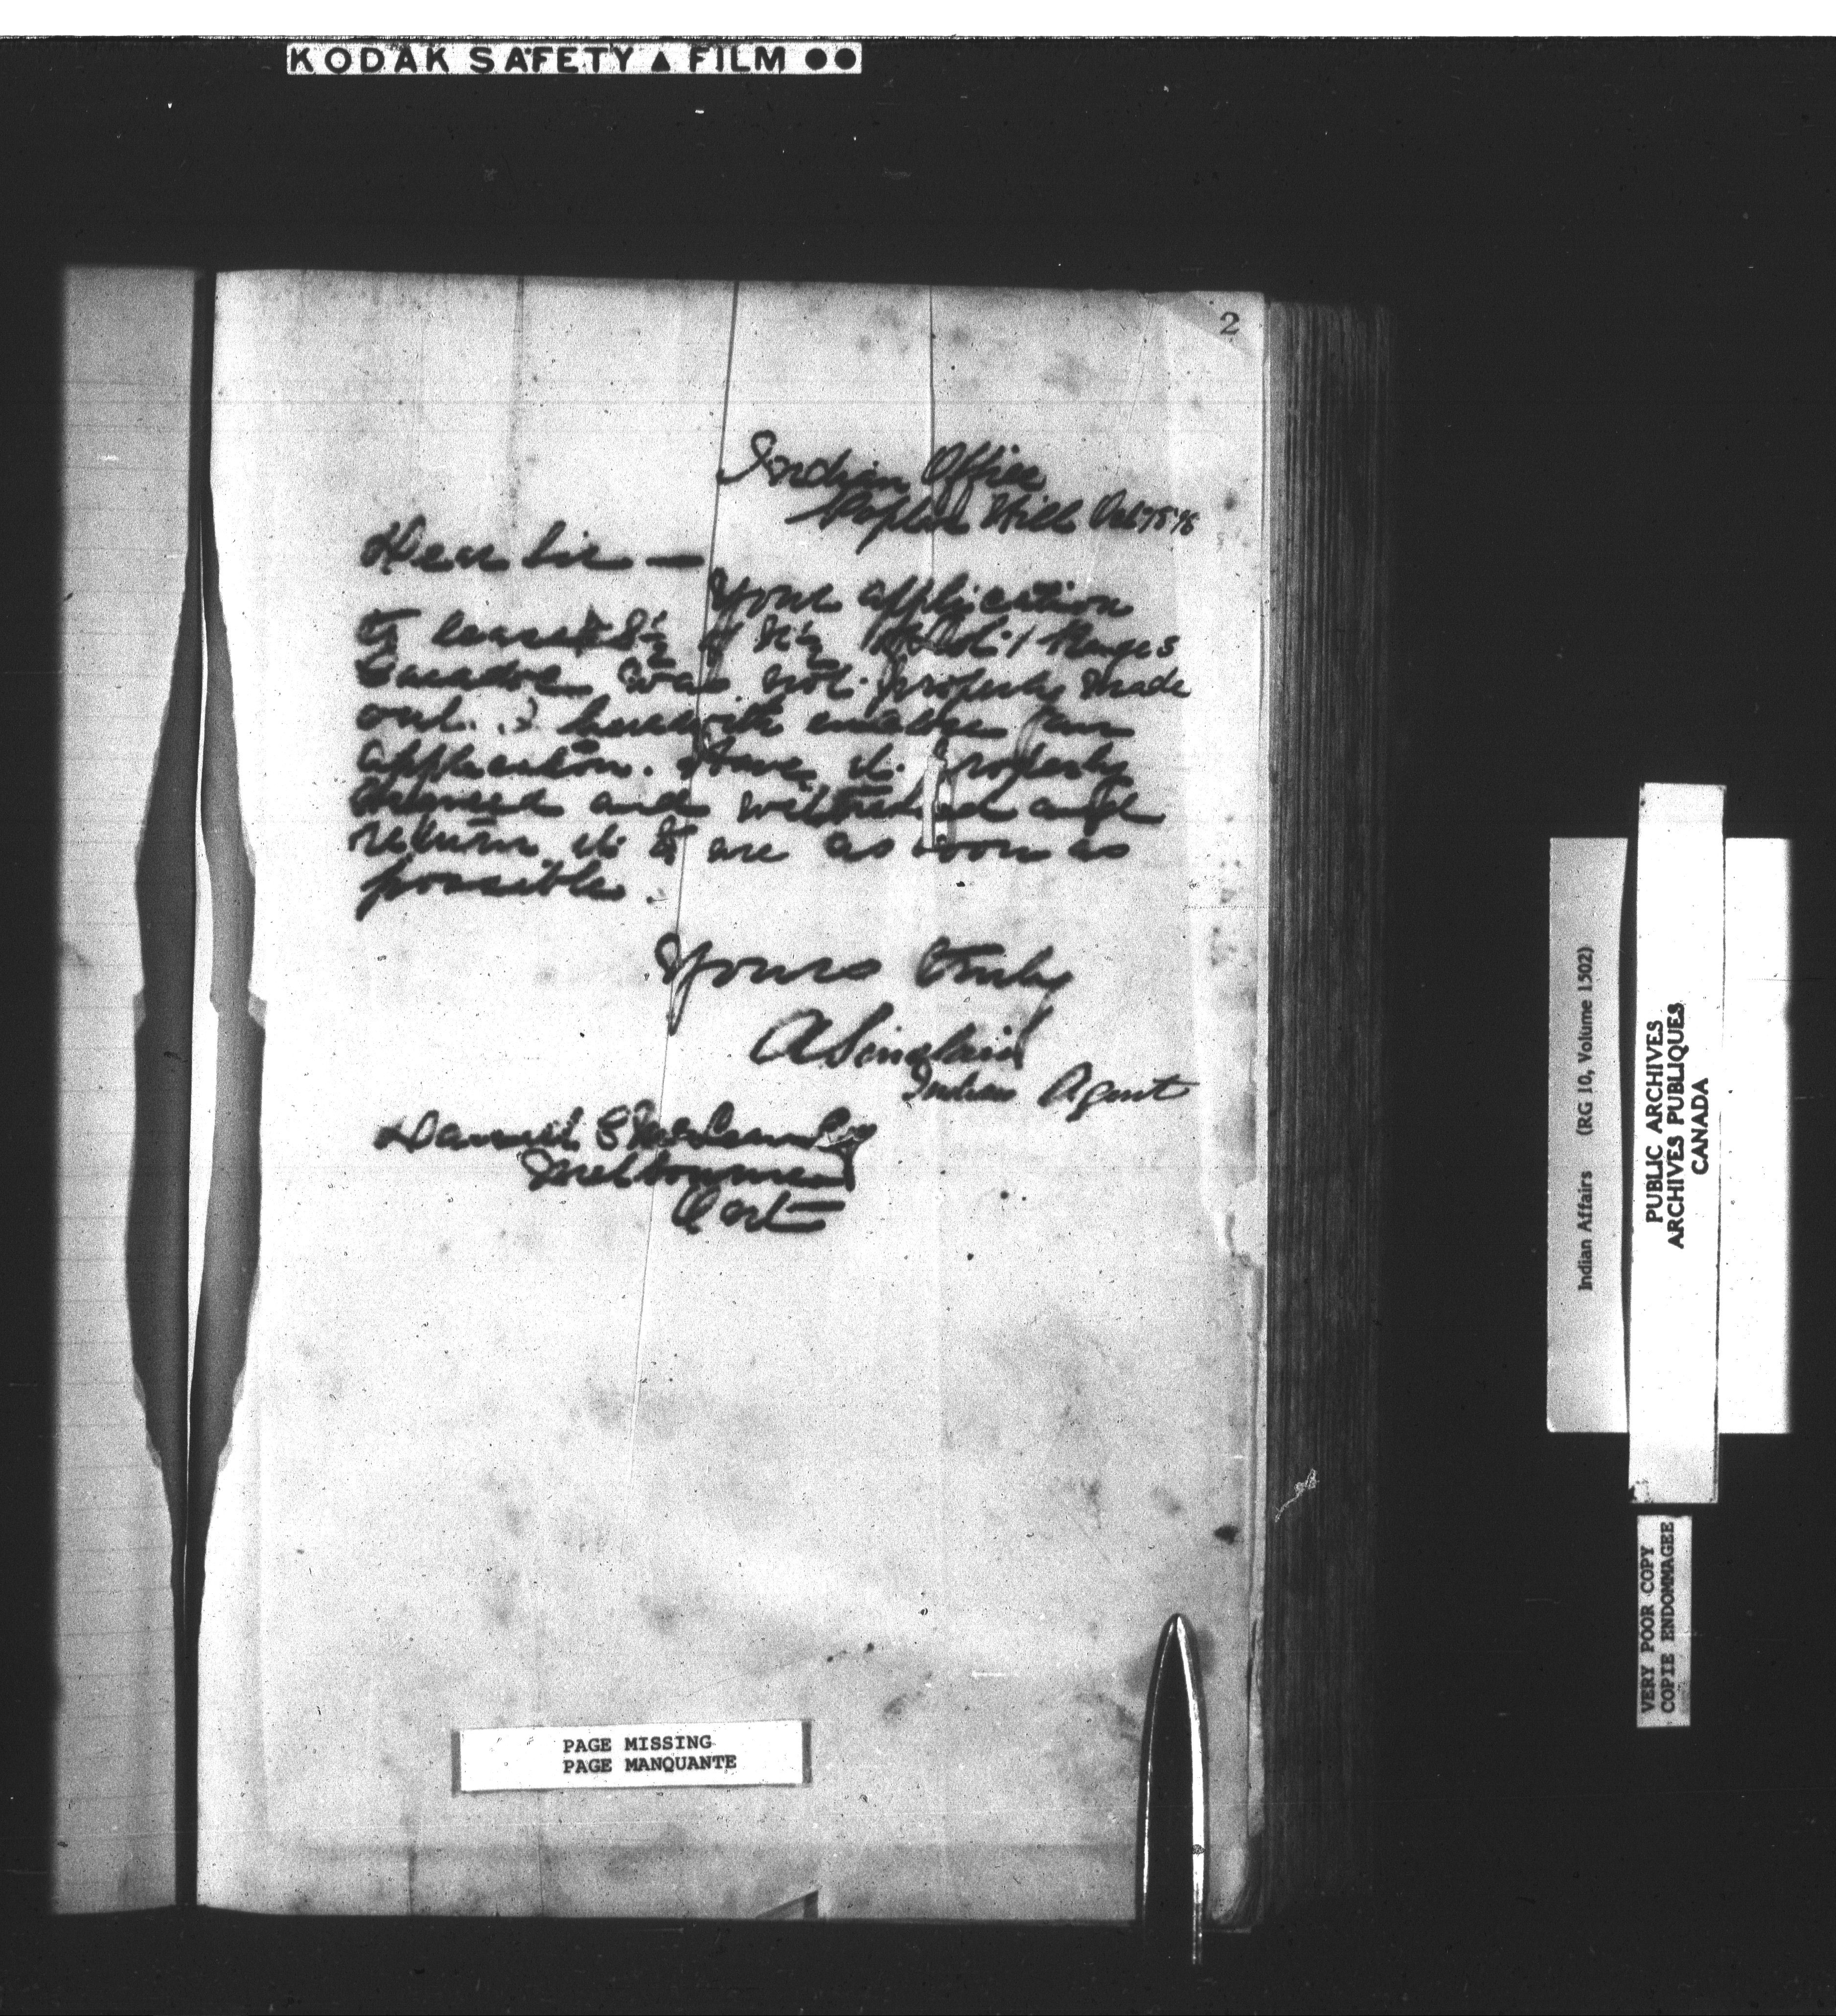 KODAK SAFETY ▲ FILM ●●
2
Indian Office
Poplar Hill Oct
Dear Sir —
Your application
to lease S½ of N½ 1 Range 5
Caradoc was not properly made
out. I herewith enclose an
application. Have it properly
and witnessed and
return it to me as soon as
possible.
Yours truly
A Sinclair
Indian Agent
Daniel
Melbourne
Ont
PAGE MISSING
PAGE MANQUANTE
Indian Affairs (RG 10, Volume 1502)
PUBLIC ARCHIVES
ARCHIVES PUBLIQUES
CANADA
VERY POOR COPY
COPIE ENDOMMAGEE